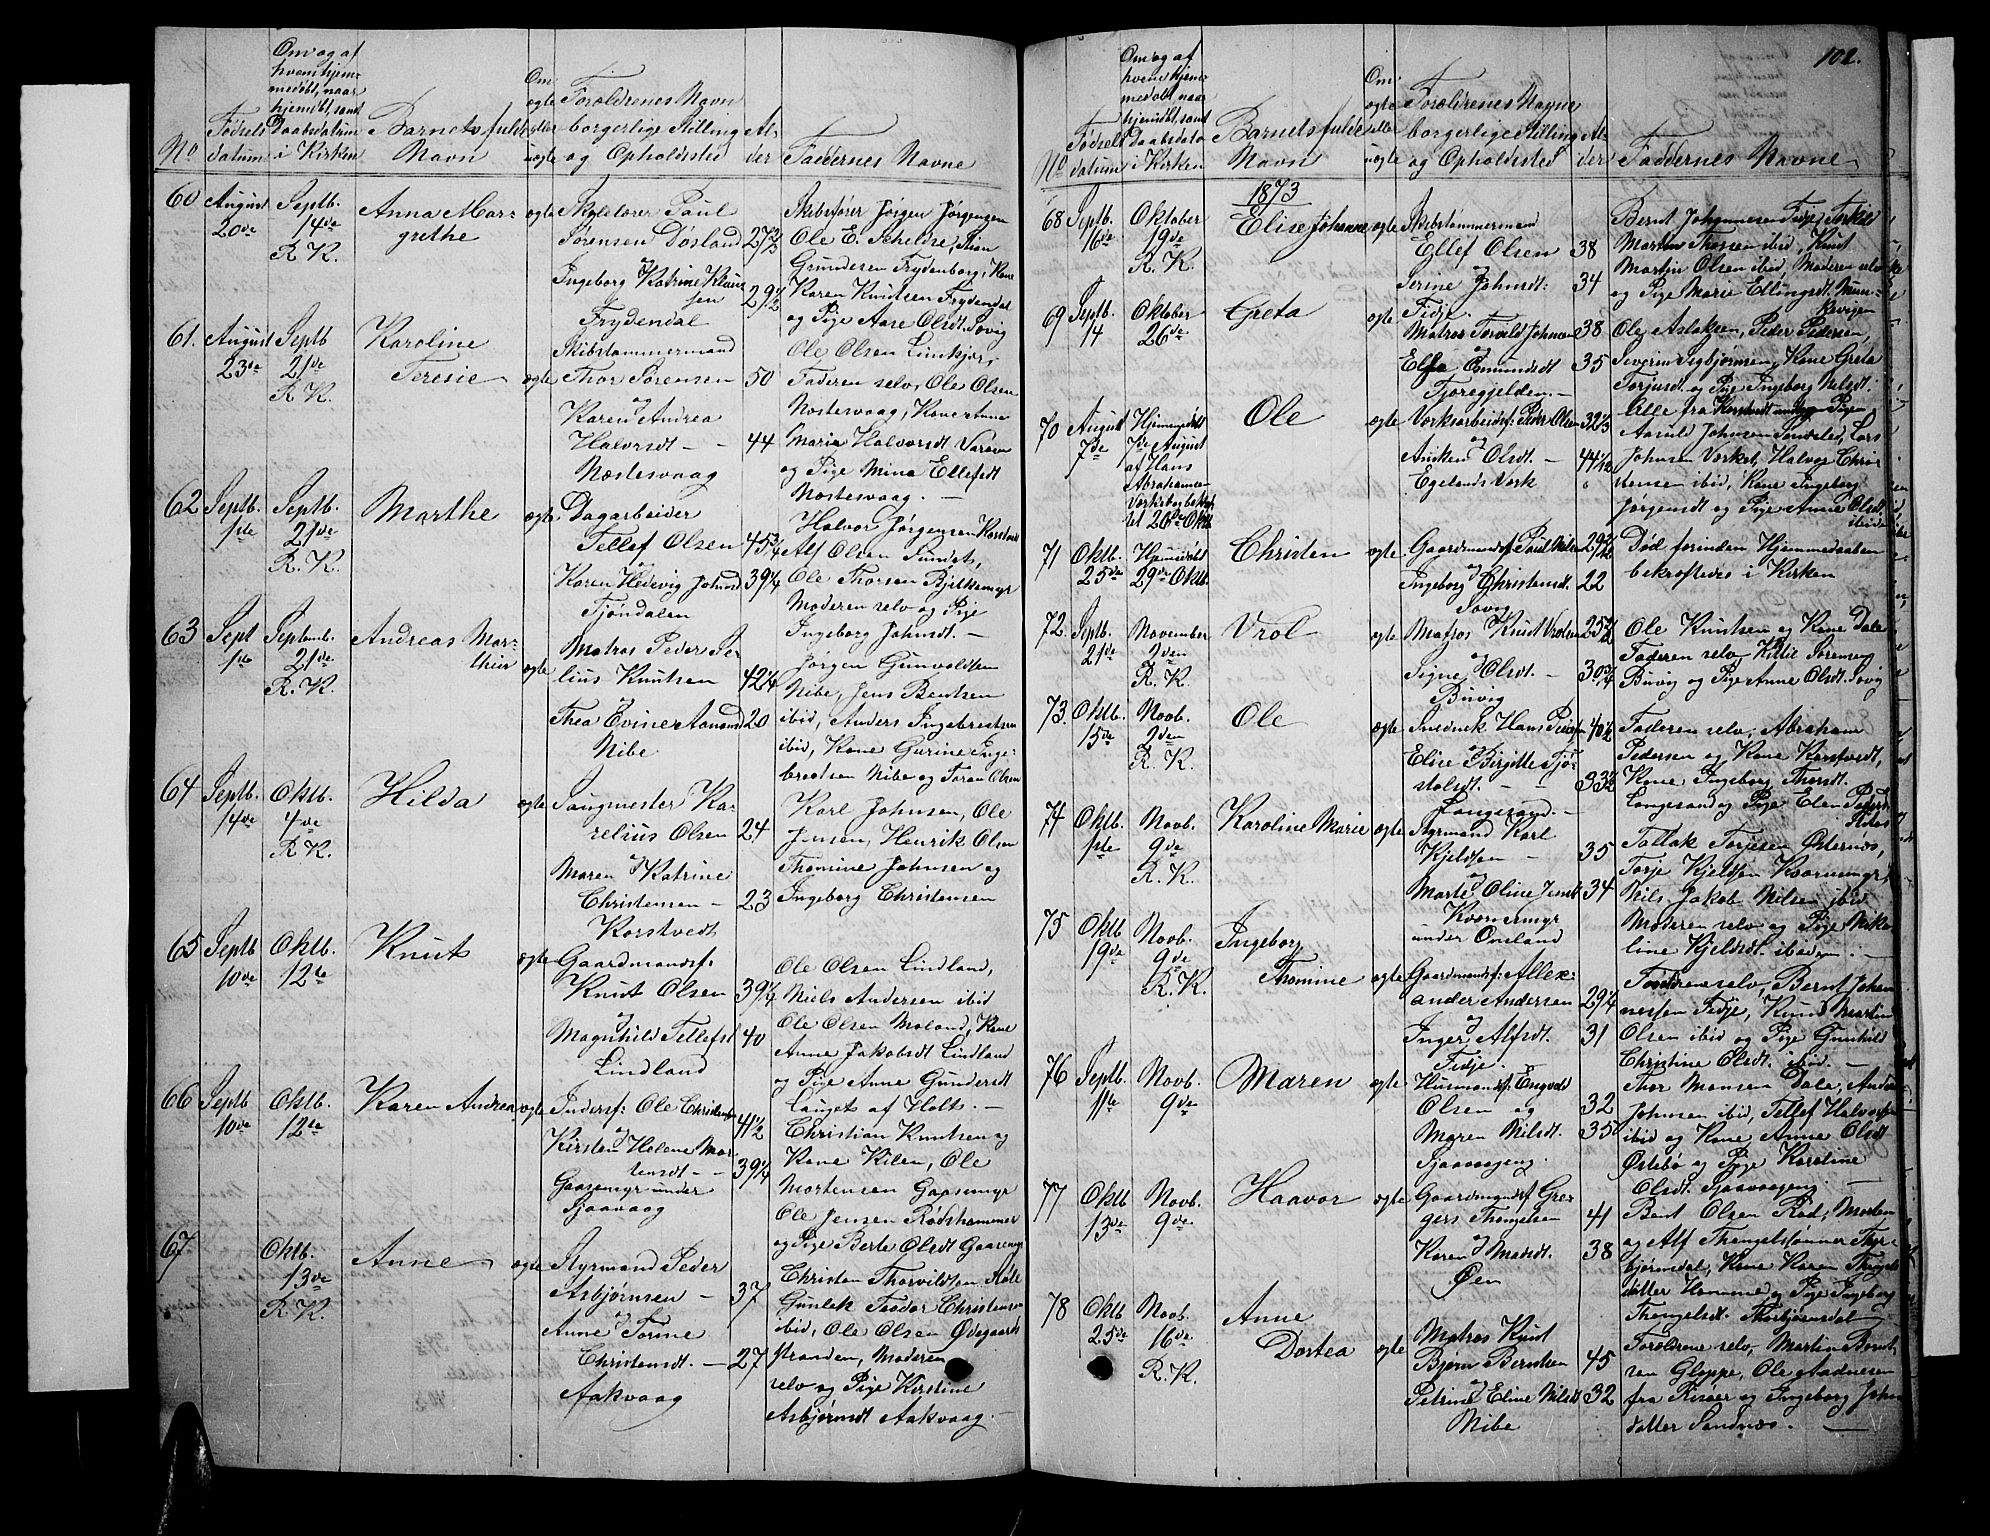 Om og af
hvem hjem-
medøbt, naar
hjemdbt, samt
Daabsdatum
i Kirken
Om
ægte
eller
uægte
No
Fødsels
datum
Barnets fulde
Navn
Forældrenes Navn
borgerlige Stilling
og Opholdssted
Al-
der
Faddernes Navne
60
August
20de
Septb.
14de
R. K.
Anna Mar-
grethe
ægte
Paul
Sørensen Døsland
27
og
Ingeborg Katrine Klau-
sen
29 1/2
Frydendal
Skibsfører Jørgen Jørgensen
Ole E. Scheldse,
Gundersen Frydenborg, Kone
Karen Knutsen Frydendal
og Pige Aase Olsdt. Søvig
61.
August
23de
Septb
21de
R. K.
Karoline
Teresie
ægte
Skibstømmermand
Thor Sørensen
50
og
Karen Andrea
Halvorsdt
44
Næstesvaag
Ole Olsen
Faderen selv, Ole Olsen
Næstesvaag, Kone Anne
Maria Halvorsdt
og Pige Mina Ellefsdt
Næstesvaag. —
62
Septb.
1ste
Septb.
21de
R. K.
Marthe
ægte
Dagarbeider
Tellef Olsen
45 3/4
og
Karen Hedevig Johnsd
39 1/4
Tjøndalen
Halvor Jørgensen Korstvedt
Alf Olsen Sundet,
Ole Thorsen
Moderen selv og Pige
Ingeborg Johnsdt. —
63
Sept
1ste
Septemb.
21de
R. K.
Andreas Mar-
thin
ægte
Matros Peder Se-
lius Knutsen
42 1/4
og
Thea Evine Aanonsd
20
Nibe
Jørgen Gunvaldsen
Nibe, Jens Bentsen
ibid, Anders Ingebretsen
ibid, Kone Gurine Inge-
bretsen Nibe og Olsen
64
Septb.
14de
Oktb.
4de
R. K.
Hilda
ægte
Saugmester Ka-
relius Olsen
24
og
Maren Katrine
Christensen —
23
Korstvedt
Karl Johnsen, Ole
Jensen, Henrik Olsen
Thomine Johnsen og
Ingeborg Christensen
65
Septb
10de
Oktb.
12te
Knut
ægte
Gaardmandsf:
Knut Olsen
39 1/4
og
Magnhild Tellefsd
40
Lindland
Ole Olsen Lindland,
Niels Andersen ibid
Ole Olsen Moland, Kone
Anne Jakobsdt Lindland
og Pige Anne Gundersdt
Langets af Holts. —
66
Septb
10de
Oktb.
12te
Karen Andrea
ægte
Indersf: Ole Christensen
41 1/2
og
Kirsten Helene Mor-
tensdt —
39 1/4
Gaasemyr under
Sjaavaag
Christian Knutsen og
Kone Kilen, Ole
Mortensen Gaasemyr
Ole Jensen Rødshammer
og Pige Berte Olsdt Gaasemyr
67
Oktb.
13de
R. K.
Anne
ægte
Styrmand Peder
Asbjørnsen —
37
og
Anne Tomine
Christensdt. —
27
Aakvaag
Christen Thorvildsen
Gunlek Teodor Christensen
ibid, Ole Olsen Ødegaards
stranden, Moderen
selv og Pige Kirstine
Asbjørnsdt Aakvaag. —
102.
Om og af
hvem hjem-
medøbt, naar
hjemdbt, samt
Daabsdato
i Kirken
Om
ægte
eller
uægte
No
Fødsels
datum
Barnets fulde
Navn
Forældrenes Navne
borgerlige Stilling
og Opholdssted
Al-
der
Faddernes Navne
1873
68
Septb.
16de
Oktober
19de
R. K.
Elise Johanne
ægte
Skibstømmermand
Ellef Olsen
38
og
Serine Johnsdt:
34
Fidje.
Bernt Johannesen Fidje,
Martin Thorsen ibid, Knut
Martin Olsen ibid, Moderen selv
og Pige Marie Ellingsdt.
69
Septb.
14
Oktober
26de
Greta
ægte
Matros Torvild Johnsen
38
og
Elfa Omundsdt
35
Fjoregjelden. —
Ole Aslaksen, Peder Pedersen,
Severin Sigbjørnsen, Kone Greta
Torjusdt. og Pige Ingeborg Nilsdt.
Alle fra Korstvedt
70
August
7de
Hjemmedøbt
7de August
af Hans
Abrahamsen
Verket, bekræf-
tet 26de Oktb
Ole
ægte
Verksarbeidsf: Peder Olsen
32
og
Aniken Olsdt. —
44 1/2
Egelands Verk
Aasuld Johnsen Sandaled, Lars
Johnsen Verket, Halvor Chris-
tensen ibid, Kone Ingeborg
Jørgensdt og Pige Anne Olsdt.
ibid
71
Oktb.
25de
Hjemmedøbt
29de Oktb.
Christen
ægte
Gaardmandsf. Poul Nilsen
29
og
Ingeborg Christensdt.
22
Søvig
Død forinden Hjemmedaaben
bekræftedes i Kirken
72.
Septb.
21de
November
2den
R. K.
Vrol
ægte
Matros Knut Vrolsen
25
og
Signe Olsdt. —
30 3/4
Buvig
Ole Knutsen og Kone Dale
Faderen selv, Kittil Sørensen
Buvig og Pige Anne Olsdt. Søvig
73.
Oktb.
15de
Novb.
2den
R. K.
Ole
ægte
Snedmk Hans Pedersen
40 1/2
og
Elise Birgitte Tjø-
stolsdt. — —
33
Langesand. —
Faderen selv, Abraham
Pedersen og Kone Korstvedt,
Kone Ingeborg Thorsdt.
Langesand og Pige Elen Pedersd
74
Oktb.
1ste
Novb.
9de
R. K.
Karoline Marie
ægte
Styrmand Karl
Kjeldsen —
35
og
Marte Oline Jensd
34
Kvernemyr
under Omland
Tallak Torjesen Østernes,
Torje Kjeldsen Kvernemyr,
Nils Jakob Nilsen ibid
Moderen selv og Pige Niko-
line Kjeldsdt. ibidem. —
75
Oktb
19de
Novb.
9de
R. K.
Ingeborg
Thomine
ægte
Gaardmandsf: Allex-
ander Andersen
29 1/4
og
Inger Alfsdt.
31
Fidje.
Forældrene selv, Bernt Johan-
nessen Fidje, Knut Martin
Olsen ibid og Pige Gunhild
Christine Olsdt. ibid. —
76
Septb.
11te
Novb.
9de
Maren
ægte
Husmandsf. Engvald
Olsen og
32
Maren Nilsdt.
35
Sjaavaageng.
Thor Monsen Dale, Anders
Johnsen ibid, Tellef Halvorsen
ibid og Kone Anne Olsdt
Østebø og Pige Karoline
Olsdt. Sjaavaageng. —
77
Oktb
13de
Novb.
9de
Haavor
ægte
Gaardmandsf. Gre-
gers Thengelsen
41
og
Karen Madsdt.
38
Øen
Bent Olsen Rød, Morten
og Alf Thengelsønner Thor-
bjørnsdal, Kone Karen Thengels
datter Homme og Pige Ingeborg
Thengelsdt. Thorbjørnsdal
78
Oktb
25de
Novb.
16de
R. K.
Anne
Dortea
ægte
Matros Knut
Bjørn Berntsen
45
og
Petrine Eline Nilsdt
32
Nibe
Forældrene selv, Martin Bernt-
sen Gloppe, Ole Aadnesen
fra Risøer og Ingeborg John-
datter Sandnæs. —